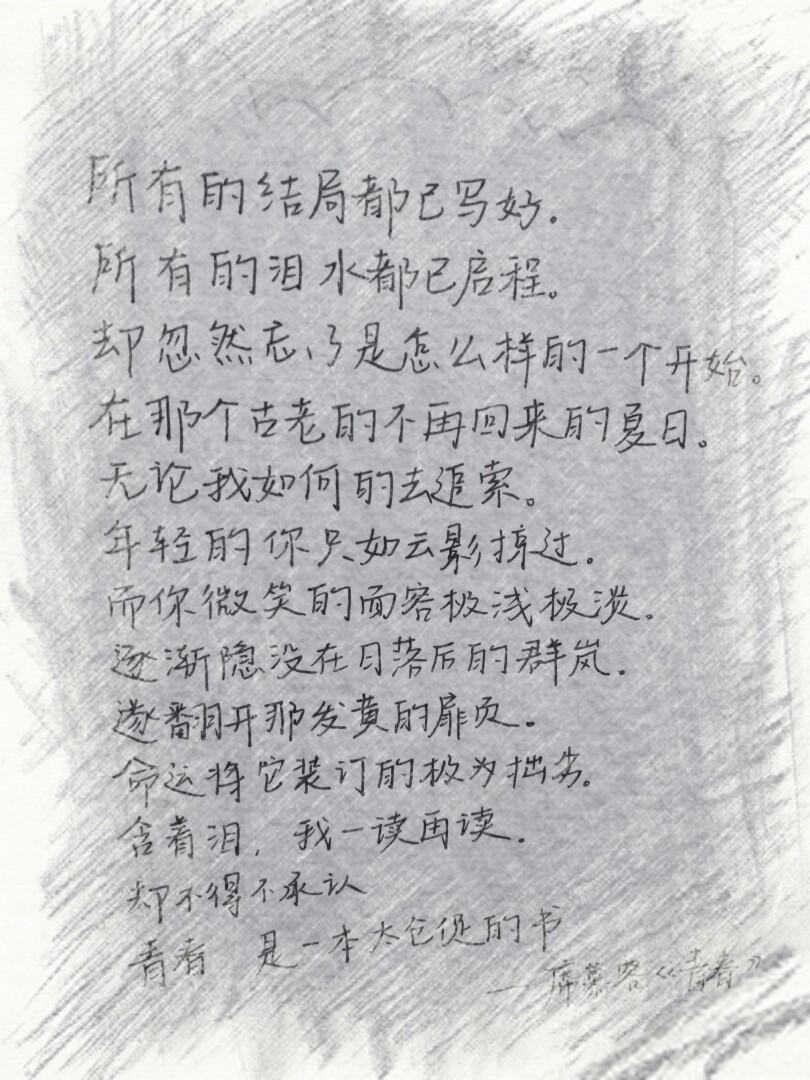 所有的结局都已写好.
所有的泪水都已启程。
却忽然忘了是怎么样的一个开始。
在那个古老的不再回来的夏日。
无论我如何的去追索。
年轻的你只如云影掠过.
而你微笑的面容极浅极淡.
逐渐隐没在日落后的群岚.
遂翻开那发黄的扉页.
命运将它装订的极为拙劣.
含着泪, 我一读再读.
却不得不承认
青春 是一本太仓促的书
— 席慕容《青春》